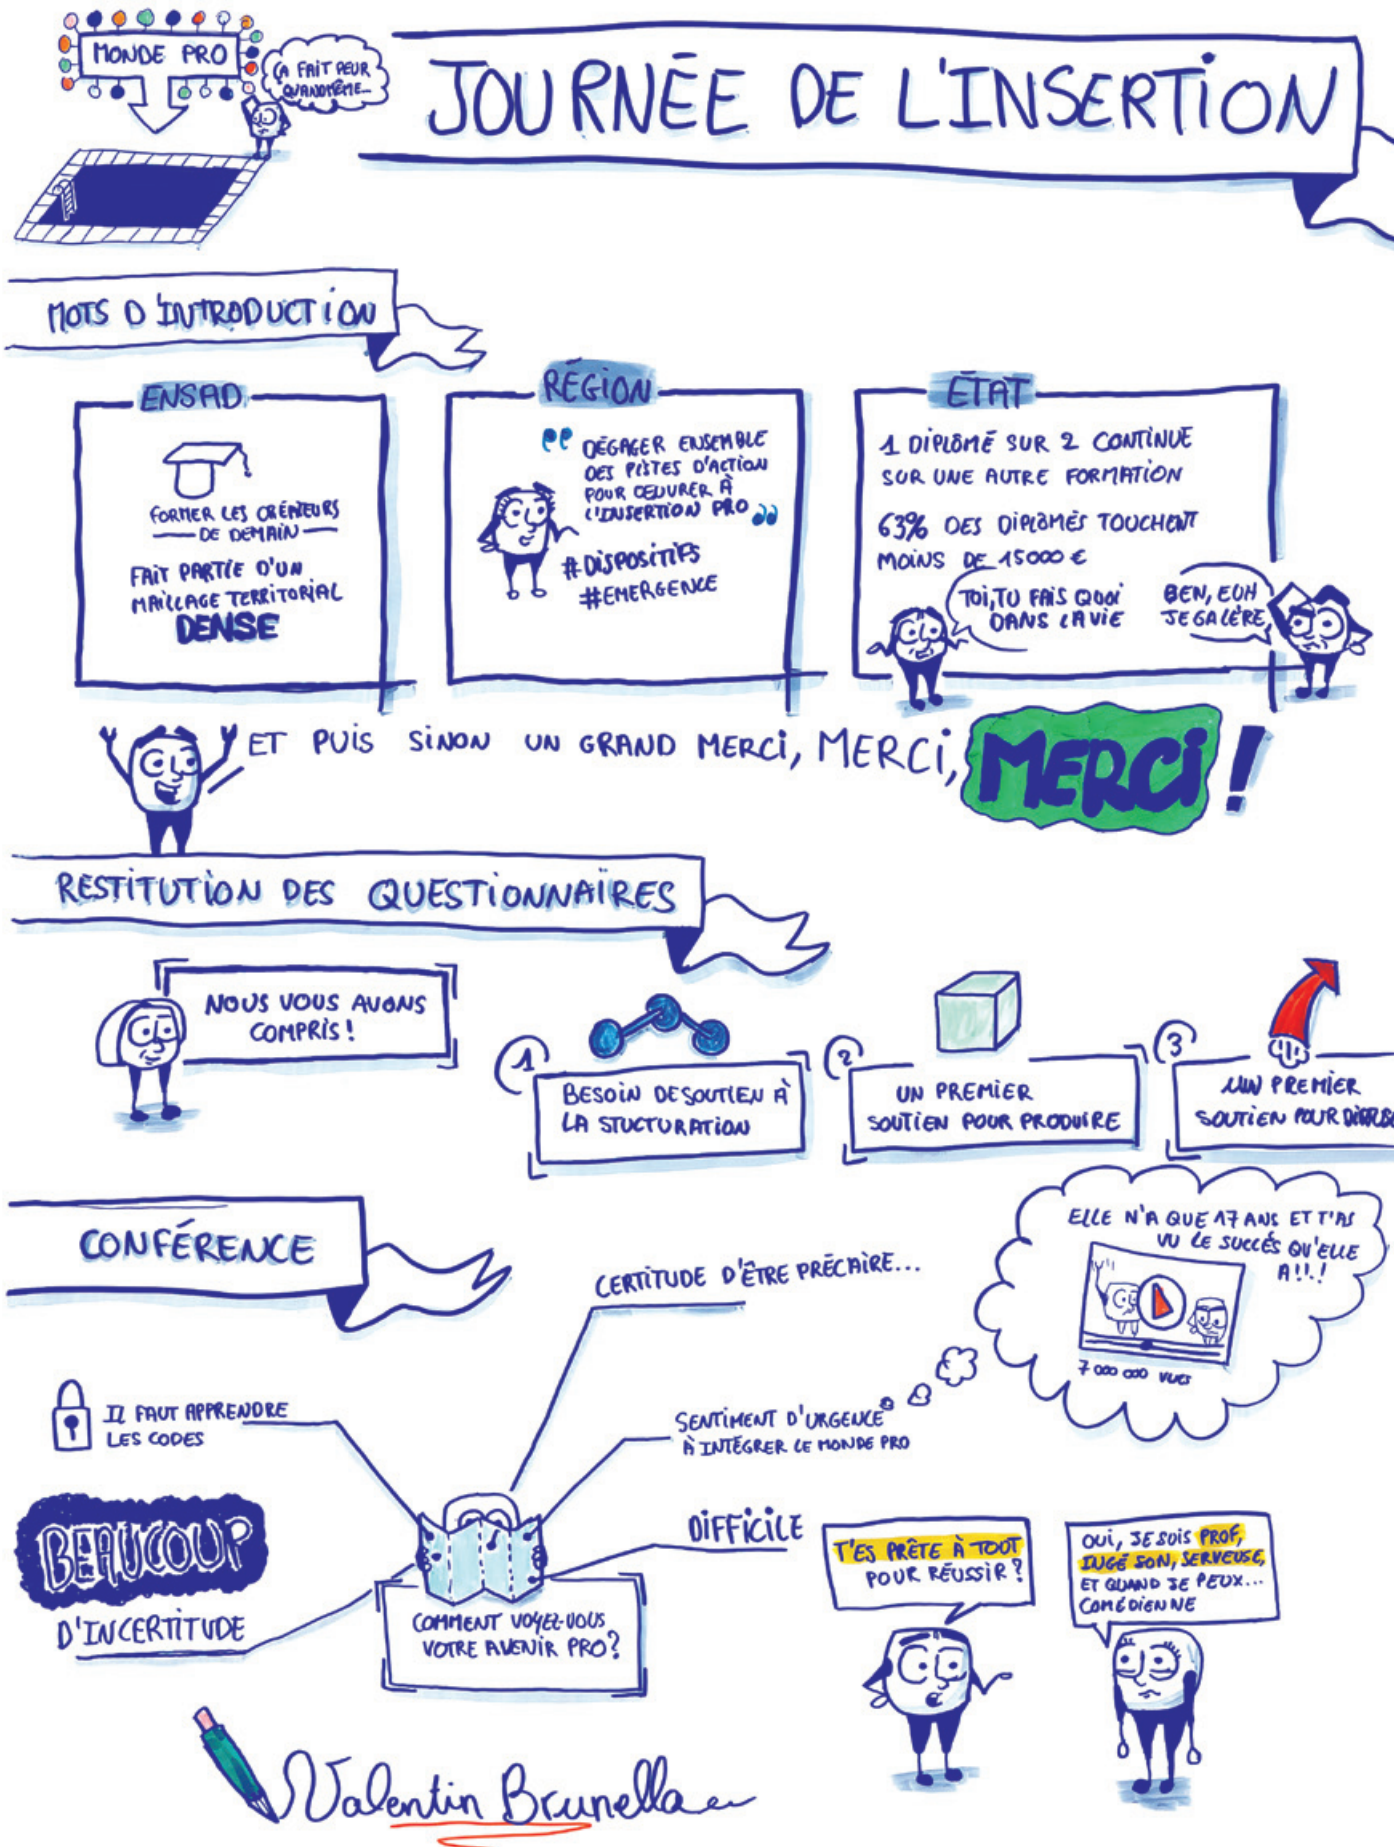 MONDE PRO
ÇA FAIT PEUR
QUAND MÊME...
JOURNÉE DE L'INSERTION
MOTS D'INTRODUCTION
ENSAD
FORMER LES CRÉATEURS
DE DEMAIN
FAIT PARTIE D'UN
MAILLAGE TERRITORIAL
DENSE
RÉGION
DÉGAGER ENSEMBLE
DES PISTES D'ACTION
POUR OEUVRER À
L'INSERTION PRO
#DISPOSITIFS
#EMERGENCE
ÉTAT
1 DIPLÔMÉ SUR 2 CONTINUE
SUR UNE AUTRE FORMATION
63% DES DIPLÔMÉS TOUCHENT
MOINS DE 15000 €
TOI, TU FAIS QUOI
DANS LA VIE
BEN, EUH
JE GALÈRE
ET PUIS SINON UN GRAND MERCI, MERCI, MERCI !
RESTITUTION DES QUESTIONNAIRES
NOUS VOUS AVONS
COMPRIS !
1
BESOIN DE SOUTIEN À
LA STUCTURATION
2
UN PREMIER
SOUTIEN POUR PRODUIRE
3
UN PREMIER
SOUTIEN POUR
CONFÉRENCE
CERTITUDE D'ÊTRE PRÉCAIRE...
ELLE N'A QUE 17 ANS ET T'AS
VU LE SUCCÉS QU'ELLE
A !!.!
7 000 000 VUES
IL FAUT APPRENDRE
LES CODES
SENTIMENT D'URGENCE
À INTÉGRER LE MONDE PRO
BEAUCOUP
D'INCERTITUDE
DIFFICILE
COMMENT VOYEZ-VOUS
VOTRE AVENIR PRO ?
T'ES PRÊTE À TOUT
POUR RÉUSSIR ?
OUI, JE SUIS PROF,
INGÉ SON, SERVEUSE,
ET QUAND JE PEUX...
COMÉDIENNE
Valentin Brunella